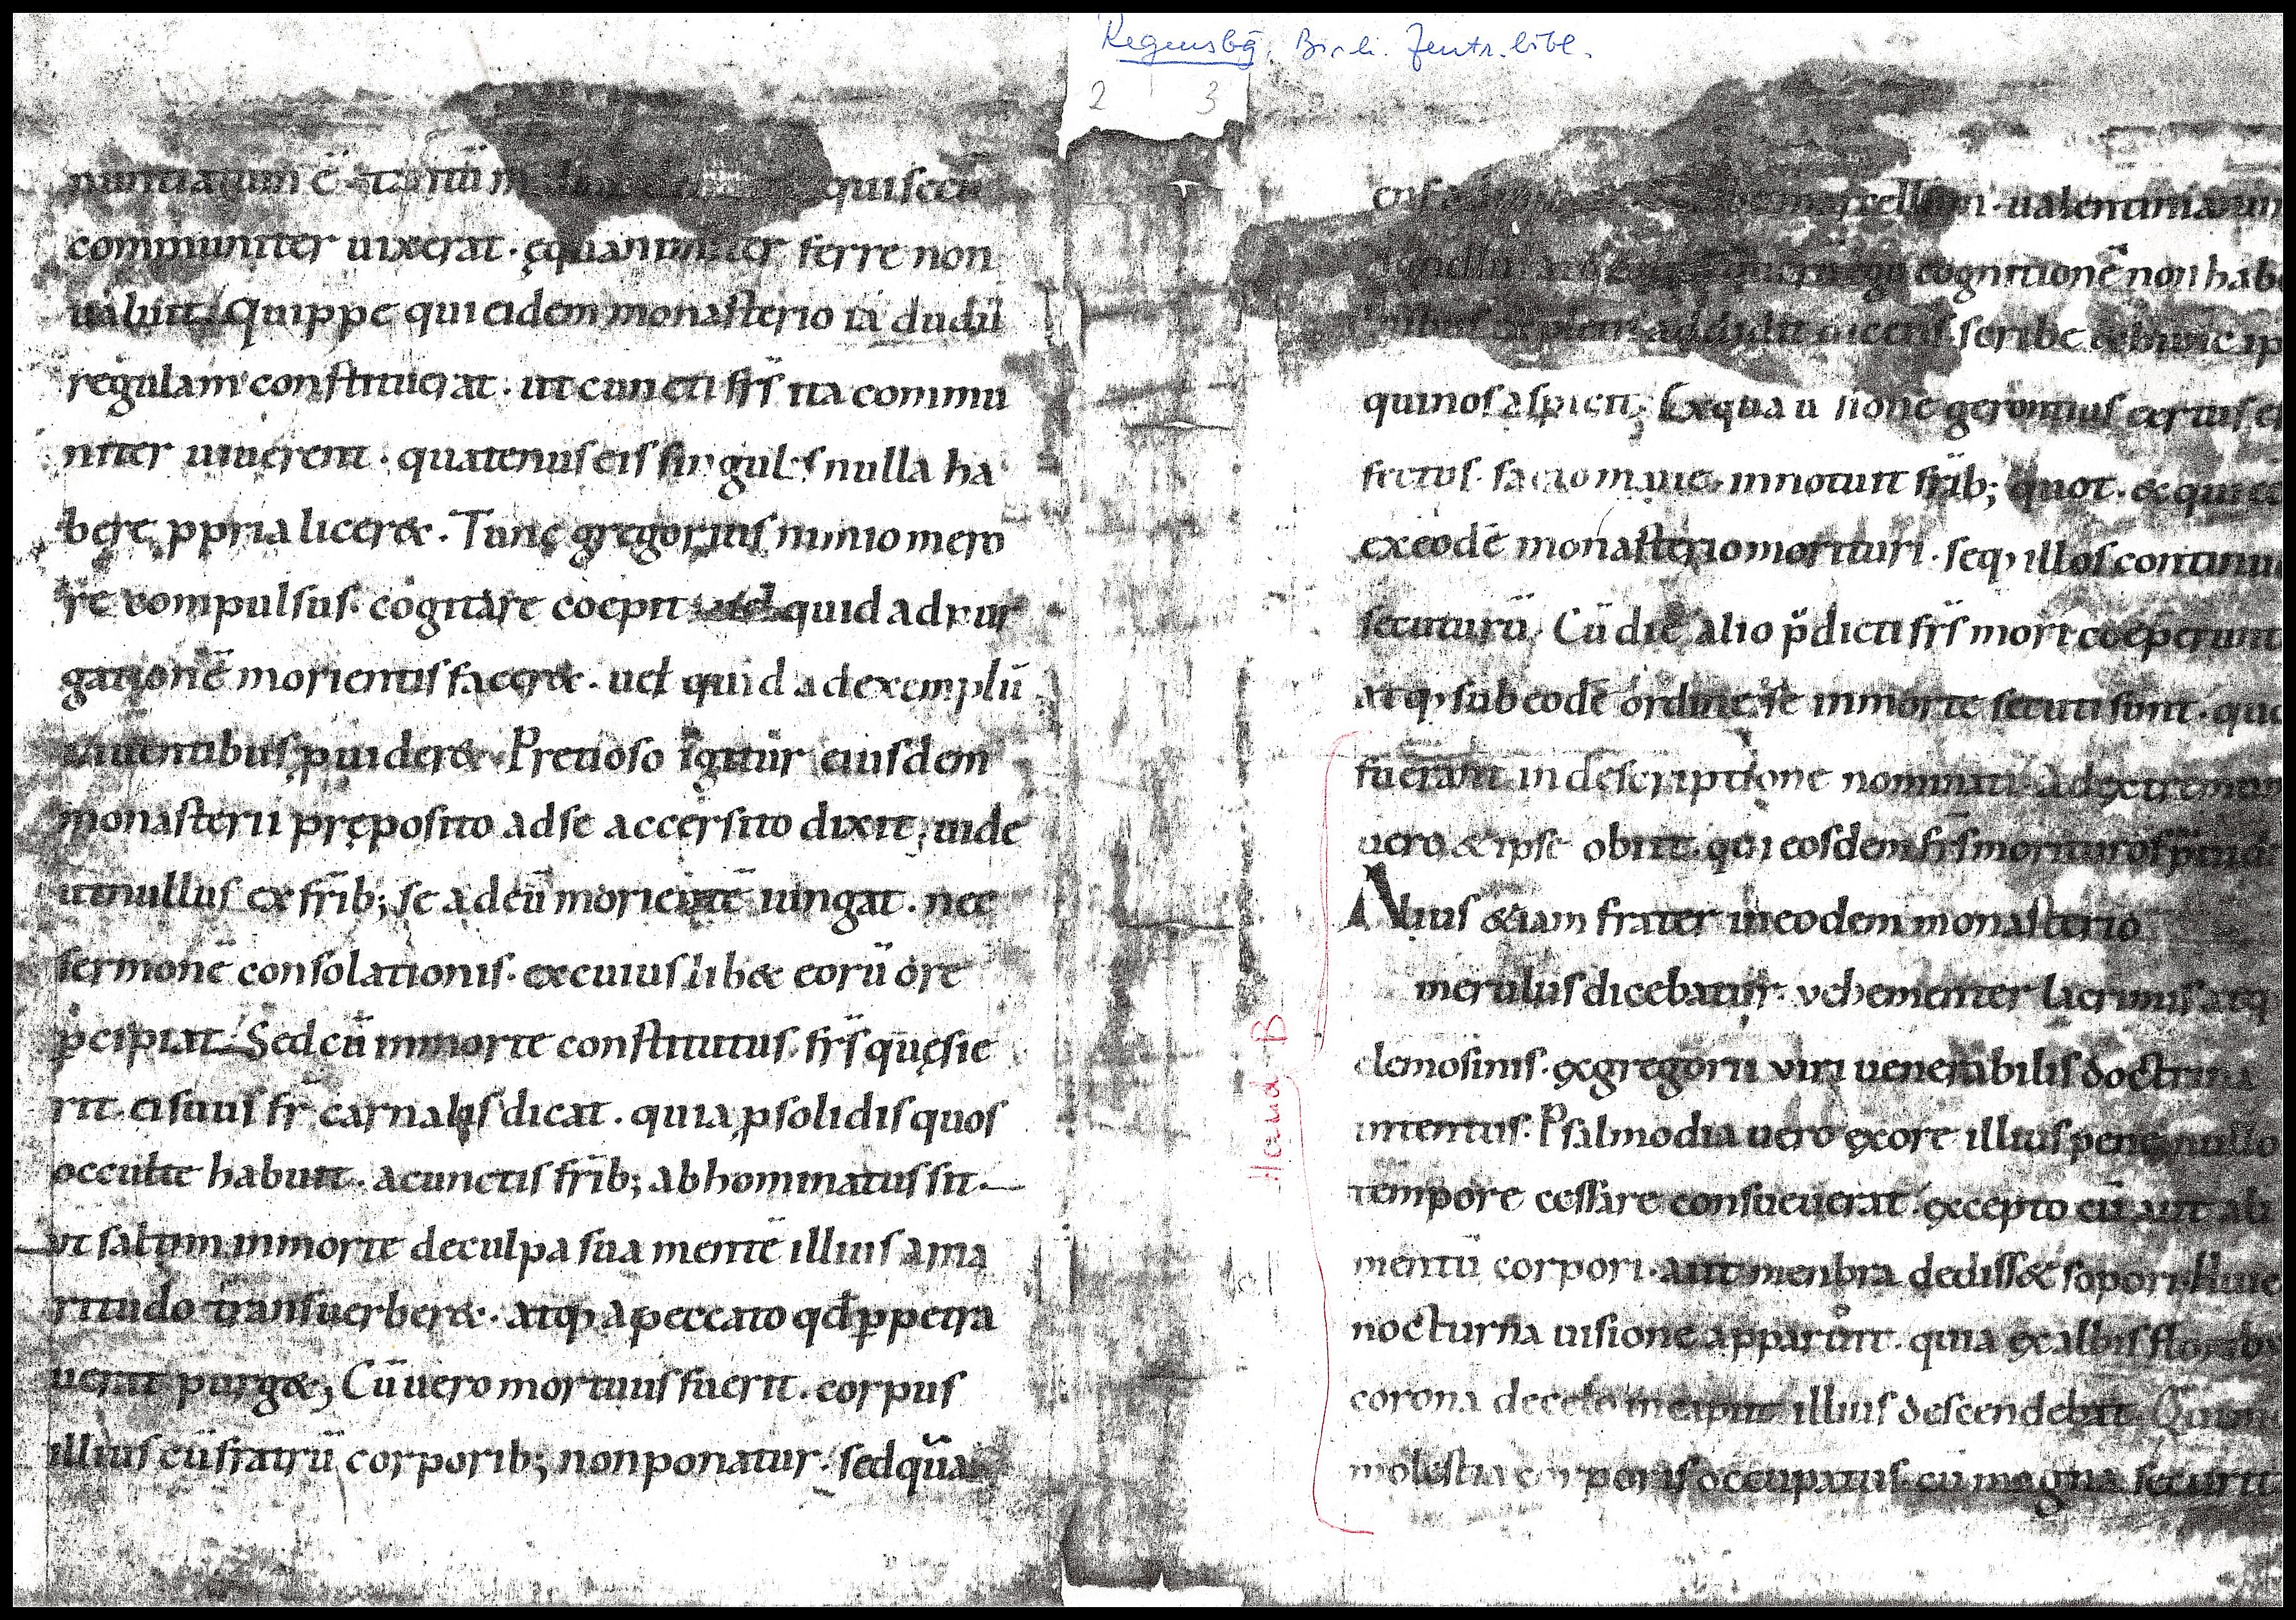 Regensbg. Bischl. Zentr. bibl.
2 3
nuntiatum ē· tantū m qui secū
communiter uixerat· ęquanimiter ferre non
ualuit. Quippe qui eidem monasterio iā dudū
regulam constituerat· ut cuncti fr̄s ita commu
niter uiuerent· quatenus eis singulis nulla ha
bere ꝓpria licer&. Tunc gregorius nimio mero
re compulsus· cogitare coepit quid ad pur
gationē morientis facer&· uel quid ad exemplū
uiuentibus ꝓuider&. Pretioso igitur eiusdem
monasterii pręposito ad se accersito dixit; uide
ut nullus ex fr̄ib; se ad eū morientē iungat· nec
sermonē consolationis· ex cuius lib& eorū ore
p̄cipiat. Sed cū inmorte constitutus· fr̄s quęsie
rit· ei suus fr̄ carnalis dicat· quia ꝓ solidis quos
occulte habuit· a cunctis fr̄ib; abhominatus sit·
ut saltim inmorte de culpa sua mentē illius ama
ritudo transuerber&· atq; a peccato qđ ꝑpetra
uerit purg&; Cū uero mortuus fuerit· corpus
illius cū fratrū corporib; non ponatur· sed qua
marcellum· ualentinianum
cognitionē non hab
addidit dicens· scribe & hunc ip
qui nos aspicit; Ex qua u sione gerontius certus ef
fectus· facto mane· innotuit fr̄ib; quot· & qui
ex eodē monasterio morituri· seq; illos continuo
secuturū. Cū die alio p̄dicti fr̄s mori coeperunt
atq; sub eodē ordine se inmorte secuti sunt· quo
fuerant in descriptione nominati. Ad extremum
uero & ipse obiit· qui eosdem fr̄s morituros p̄uidit
Alius &iam frater in eodem monasterio
merulus dicebatur· vehementer lacrimis atq;
elemosinis· ex gregorii viri uenerabilis doctrina
intentus. Psalmodia uero ex ore illius pene nullo
tempore cessare consueuerat· excepto cū aut ali
mentū corpori· aut menbra dediss& sopori. Huic
nocturna uisione apparuit· quia ex albis floribus
corona de celo in caput illius descendebat. Qui mox
molestia corporis occupatus· cū magna securit
Hand B